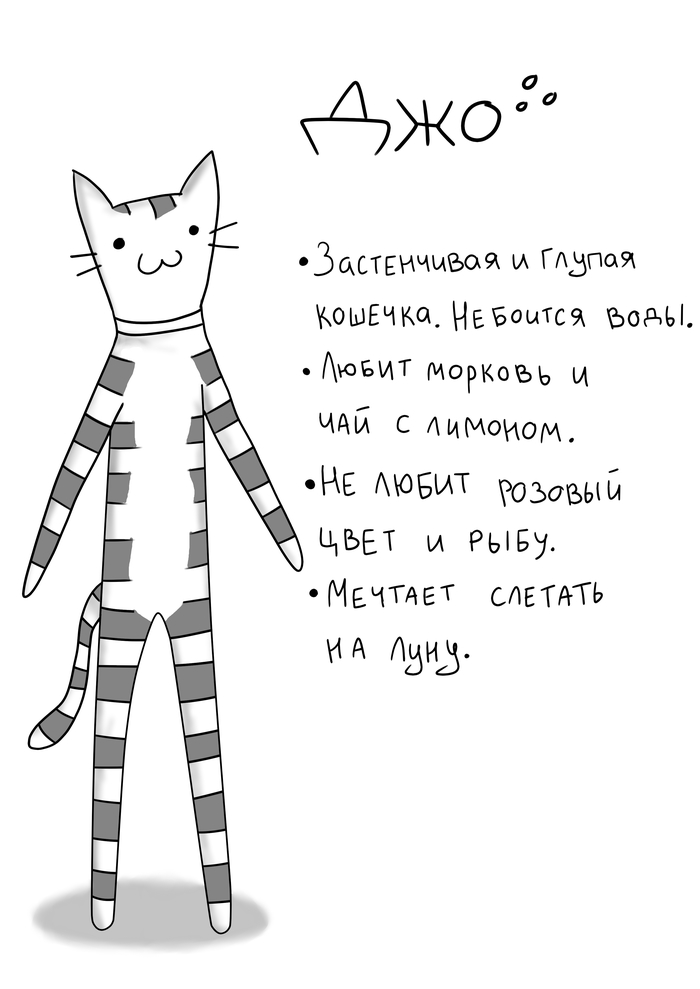 Джо
•Застенчивая и глупая
кошечка. Не боится воды.
•Любит морковь и
чай с лимоном.
•Не любит розовый
цвет и рыбу.
•Мечтает слетать
на луну.